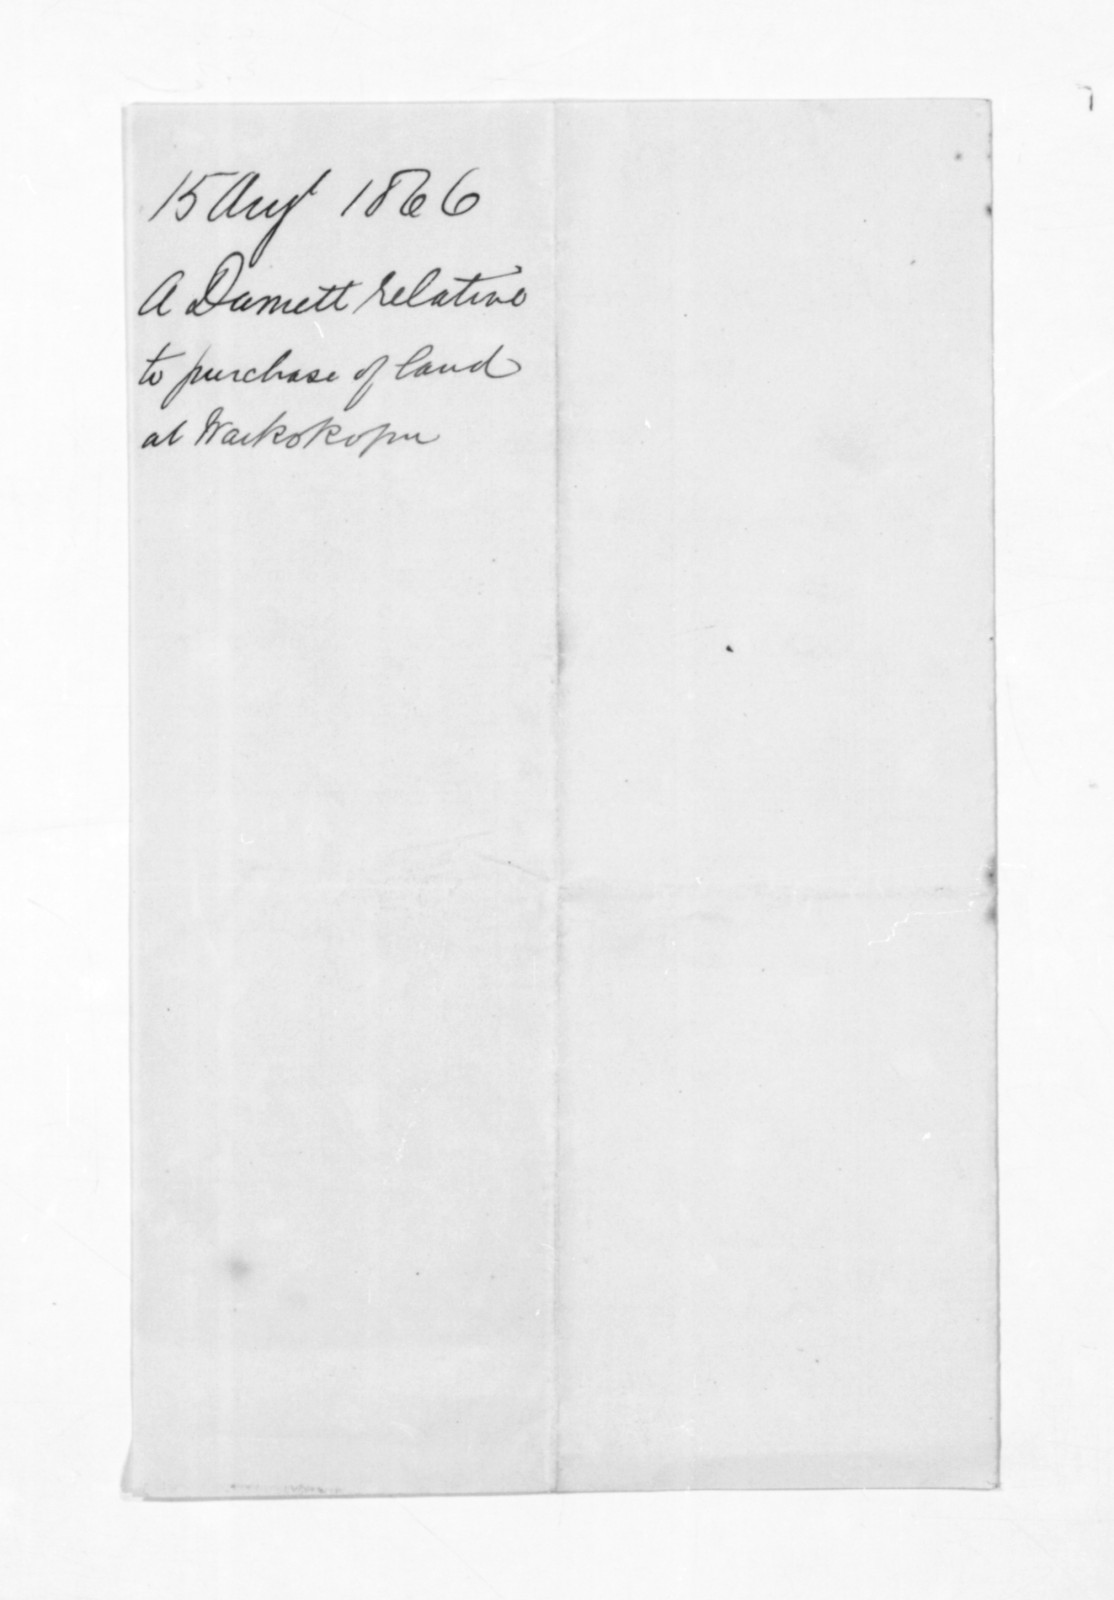 15 Augt 1866
A Damett relative
to purchase of land
at Waikokopu